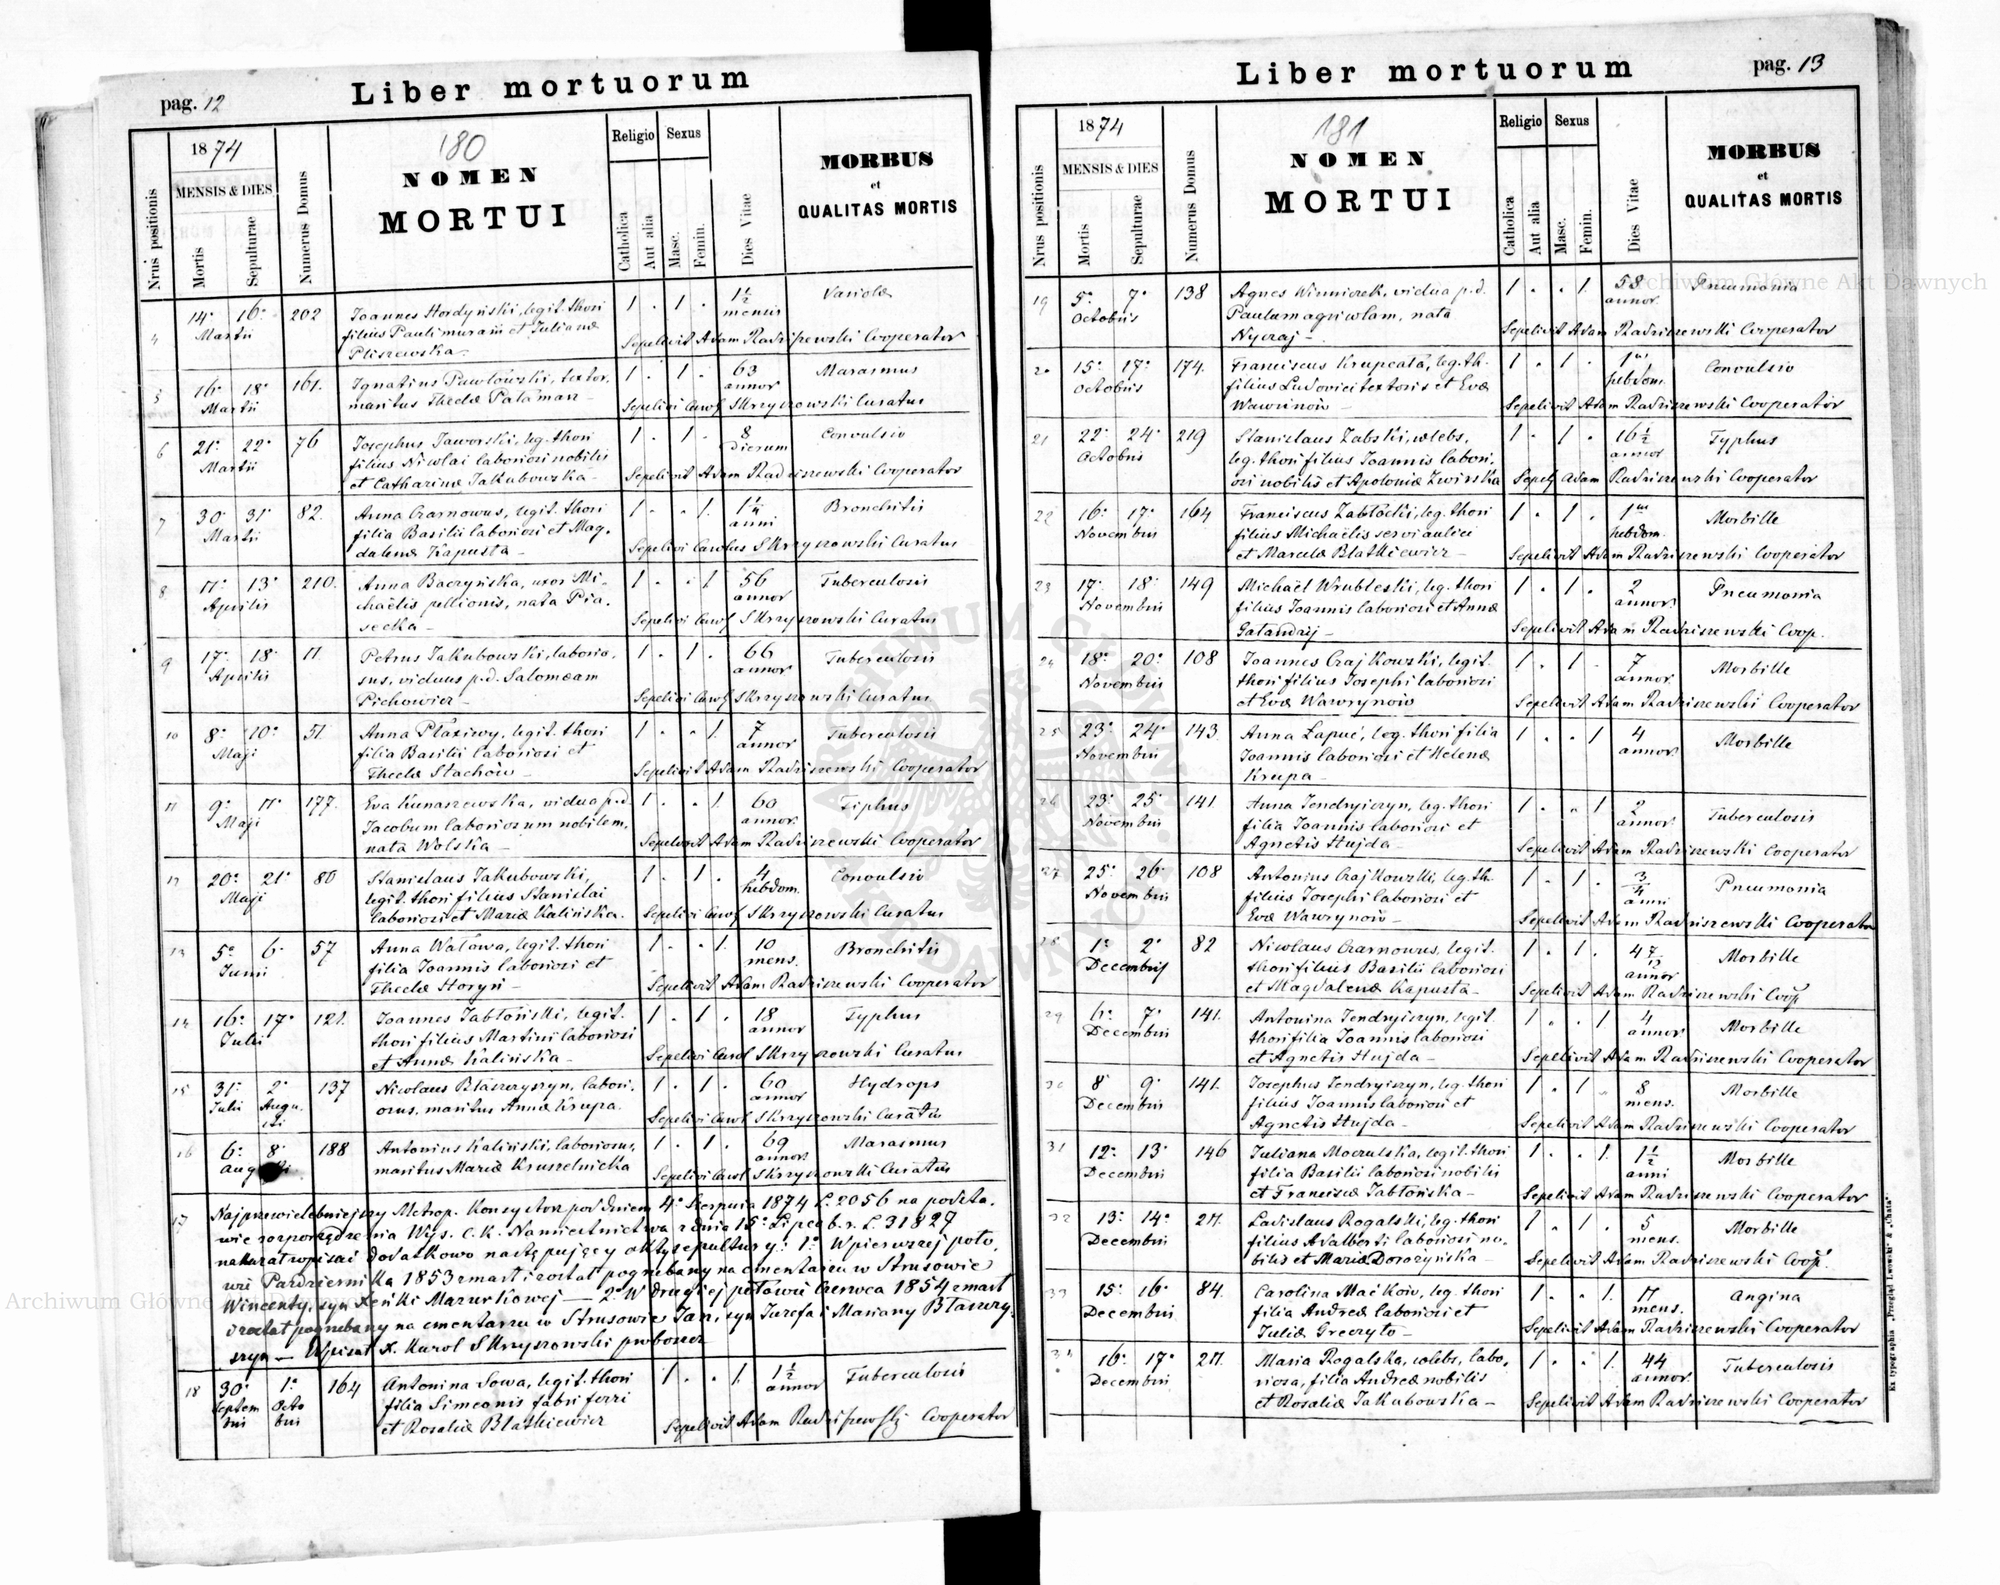 pag. 12
Liber mortuorum
Nrus positionis
1874
MENSIS & DIES
Mortis
Sepulturae
Numerus Domus
180
NOMEN
MORTUI
Religio
Catholica
Aut alia
Sexus
Masc.
Femin.
Dies Vitae
MORBUS
et
QUALITAS MORTIS
4 14. 16. 202 Joannes Hordyński, legit. thori 1 . 1 . 1½ Variolæ
Martii filius Pauli murarii et Julianæ mensis
Pliszewska Sepelivit Adam Radziszewski Cooperator
5 16. 18. 161. Ignatius Pawłowski, textor, 1 . 1 . 63 Marasmus
Martii maritus Theclæ Patamarz annor
Sepelivi Carol Skrzyszowski Curatus
6 21. 22. 76 Josephus Jaworski, leg. thori 1 . 1 . 8 Convulsio
Martii filius Nicolai laboriosi nobilis Dierum
et Catharinæ Jakubowska Sepelivit Adam Radziszewski Cooperator
7 30 31 82. Anna Czarnowus, legit. thori 1 . . 1. 1¼ Bronchitis
Martii filia Basilii laboriosi et Mag- anni
dalenæ Kapusta Sepelivi Carolus Skrzyszowski Curatus
8 11. 13. 210. Anna Baczyńska, uxor Mi- 1 . . 1 56 Tuberculosis
Aprilis chaëlis pellionis, nata Pia- annor
secka Sepelivi Carol Skrzyszowski Curatus
9 17. 18. 11. Petrus Jakubowski, laborio- 1. . 1. . 66 Tuberculosis
Aprilis sus, viduus p.d. Salomeam annor
Pichowicz Sepelivi Carol Skrzyszowski Curatus
10 8. 10. 51. Anna Płaziwy, legit. thori 1. . . 1. 7 Tuberculosis
Maji filia Basilii laboriosi et annor
Theclæ Stachów Sepelivit Adam Radziszewski Cooperator
11 9. 11. 177. Eva Kunaszewska, vidua p.d. 1. . . 1. 60 Tiphus
Maji Jacobum laboriosum nobilem, annor.
nata Wolska Sepelivit Adam Radziszewski Cooperator
12 20. 21. 80 Stanislaus Jakubowski, 1. . 1. . 4 Convulsio
Maji legit. thori filius Stanislai hebdom.
laboriosi et Mariæ Kalińska. Sepelivi Carol Skrzyszowski Curatus
13 5. 6. 57 Anna Watowa, legit. thori 1. . . 1. 10 Bronchitis
Junii filia Joannis laboriosi et mens.
Theclæ Horyń Sepelivit Adam Radziszewski Cooperator
14 16. 17. 121. Joannes Jabłoński, legit. 1. . 1. . 18 Typhus
Julii thori filius Martini laboriosi annor
et Annæ Kalińska Sepelivi Carol Skrzyszowski Curatus
15 31. 2. 137 Nicolaus Błaszczyszyn, labori- 1. . 1. . 60 Hydrops
Julii Augu- osus, maritus Annæ Krupa. annor
sti Sepelivi Carol Skrzyszowski Curatus
16 6. 8. 188 Antonius Kaliński, laboriosus, 1. . 1. . 69 Marasmus
maritus Mariæ Kruszelnicka annor.
Sepelivi Carol Skrzyszowski Curatus
17 Najprzewielebniejszy Metrop. Konsystorz pod dniem 4. Sierpnia 1874 L. 2056 na podsta-
wie rozporządzenia Wys. C. K. Namiestnictwa z dnia 15. Lipca b. r. L. 31827
nakazał wpisać dodatkowo następujący akty sepultury: 1. W pierwszej poło-
wie Października 1853 zmarł i został pogrzebany na cmentarzu w Strusowie
Wincenty, syn Xeńki Mazurkowej — 2. W drugiej połowie Czerwca 1854 zmarł
i został pogrzebany na cmentarzu w Strusowie Jan, syn Jozefa i Maryany Błaszczy-
szyn — Wpisał X. Karol Skrzyszowski proboszcz
18 30. 1. 164 Antonina Sowa, legit. thori 1. . . 1. 1½ Tuberculosis
Septem Octo filia Simeonis fabri ferri annor
bris bris et Rosaliæ Blatkiewicz Sepelivit Adam Radziszewski Cooperator
Liber mortuorum
pag. 13
Nrus positionis
1874
MENSIS & DIES
Mortis
Sepulturae
Numerus Domus
181
NOMEN
MORTUI
Religio
Catholica
Aut alia
Sexus
Masc.
Femin.
Dies Vitae
MORBUS
et
QUALITAS MORTIS
19 5. 7. 138 Agnes Winniczek, vidua p.d. 1 . . 1. 58 Pneumonia
Octobris Paulum agricolam, nata annor.
Nyczaj Sepelivit Adam Radziszewski Cooperator
20 15. 17. 174. Franciscus Krupcata, leg. th. 1 . 1 . 1 Convulsio
Octobris filius Ludovici textoris et Evæ hebdom.
Wawrinów Sepelivit Adam Radziszewski Cooperator
21 22. 24. 219 Stanislaus Zabski, cœlebs, 1. . 1 . 16½ Typhus
Octobris leg. thori filius Joannis labori- annor
osi nobilis et Apoloniæ Zwirska Sepel. Adam Radziszewski Cooperator
22 16. 17. 164 Franciscus Zabłocki, leg. thori 1 . 1. . 1 Morbille
Novembris filius Michaëlis servi aulici hebdom.
et Marcelæ Blatkiewicz Sepelivit Adam Radziszewski Cooperator
23 17. 18. 149 Michaël Wrubleski, leg. thori 1. . 1. . 2 Pneumonia
Novembris filius Joannis laboriosi et Annæ annor.
Gatandzij Sepelivit Adam Radziszewski Coop.
24 18. 20. 108 Joannes Czajkowski, legit. 1. . 1 . 7 Morbille
Novembris thori filius Josephi laboriosi annor.
et Evæ Wawrynów Sepelivit Adam Radziszewski Cooperator
25 23. 24. 143. Anna Łapuć, leg. thori filia 1. . . 1 4 Morbille
Novembris Joannis laboriosi et Helenæ annor.
Krupa
26 23. 25. 141. Anna Jendryiszyn, leg. thori 1. . . 1 2 Tuberculosis
Novembris filia Joannis laboriosi et annor.
Agnetis Hujda Sepelivit Adam Radziszewski Cooperator
27 25. 26. 108 Antonius Czajkowski, leg. th. 1. . 1. . ¾ Pneumonia
Novembris filius Josephi laboriosi et anni
Evæ Wawrynów Sepelivit Adam Radziszewski Cooperator
28 1. 2. 82 Nicolaus Czarnowus, legit. 1. . 1. . Morbille
Decembris thori filius Basilii laboriosi annor
et Magdalenæ Kapusta Sepelivit Adam Radziszewski Coop
29 6. 7. 141. Antonina Jendryiszyn, legit. 1 . . 1 4 Morbille
Decembris thori filia Joannis laboriosi annor
et Agnetis Hujda Sepelivit Adam Radziszewski Cooperator
30 8 9. 141. Josephus Jendryiszyn, leg. thori 1. . 1 . 8 Morbille
Decembris filius Joannis laboriosi et mens.
Agnetis Hujda Sepelivit Adam Radziszewski Cooperator
31 12. 13. 146 Juliana Moczulska, legit. thori 1. . . 1. 1½ Morbille
Decembris filia Basilii laboriosi nobilis anni
et Franciscæ Jabłońska Sepelivit Adam Radziszewski Cooperator
32 13. 14. 211. Ladislaus Rogalski, leg. thori 1. . 1. . 5 Morbille
Decembris filius Adalberti laboriosi no- mens.
bilis et Mariæ Dorożyńska Sepelivit Adam Radziszewski Coop.
33 15. 16. 84. Carolina Maćków, leg. thori 1. . . 1. 11 Angina
Decembris filia Andreæ laboriosi et mens.
Juliæ Greczyło Sepelivit Adam Radziszewski Cooperator
34 16. 17. 211. Maria Rogalska, cœlebs, labo- 1. . . 1. 44 Tuberculosis
Decembris riosa, filia Andreæ nobilis annor.
et Rosaliæ Jakubowska Sepelivit Adam Radziszewski Cooperator
Ex typographia „Przegląd Lwowski" & „Chata".
Archiwum Główne Akt Dawnych
Archiwum Główne Akt Dawnych
ARCHIWUM GŁÓWNE AKT DAWNYCH